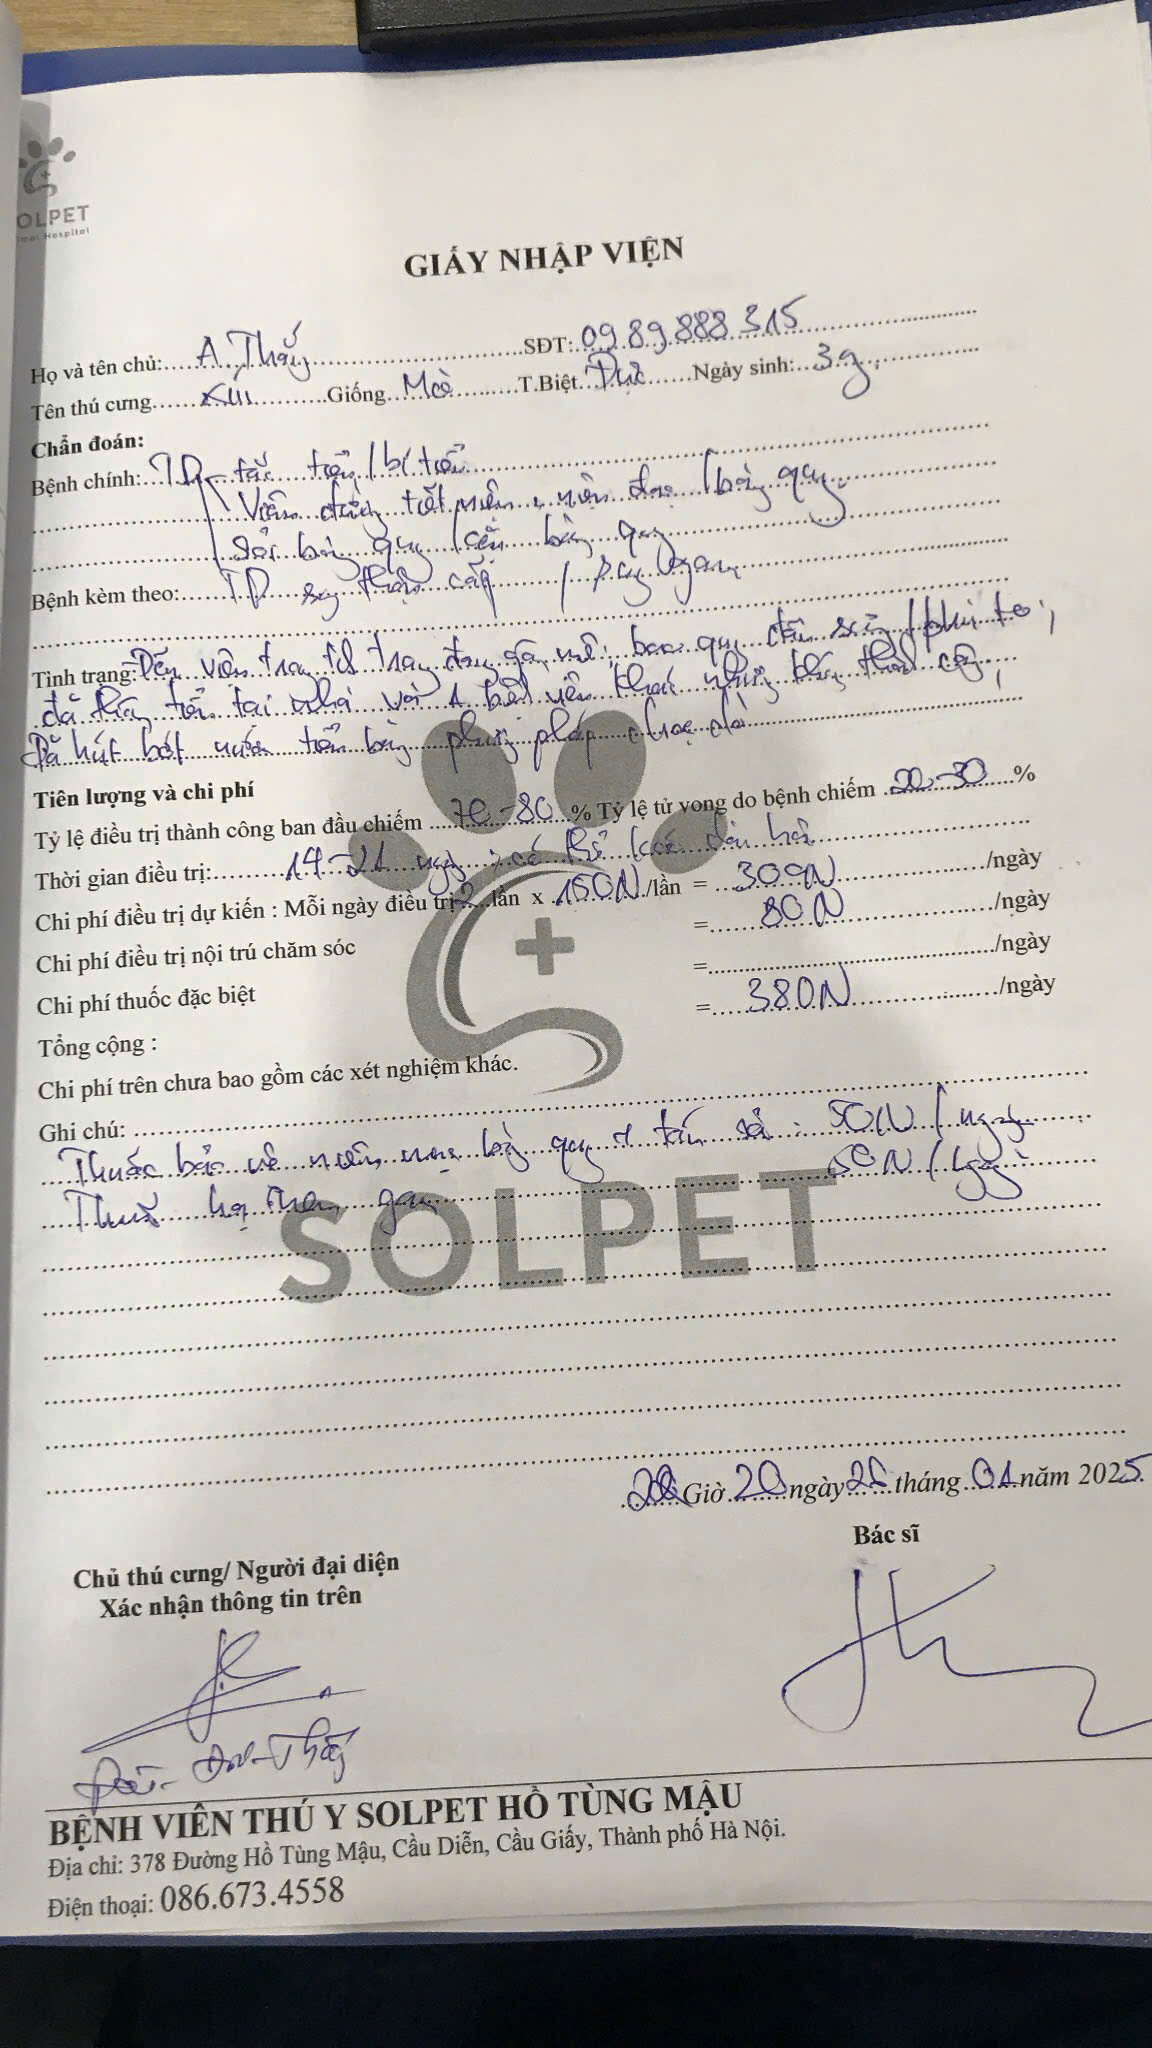 OLPET
mal Hospital
GIẤY NHẬP VIỆN
Họ và tên chủ: A Thắng SĐT: 0989888315
Tên thú cưng XIII Giống Mèo T.Biệt Đực Ngày sinh: 3g
Chẩn đoán:
Bệnh chính: TD tắc tiểu / bí tiểu
Viêm đường tiết niệu, niệu đạo / bàng quang
Sỏi bàng quang / cặn bàng quang
Bệnh kèm theo: TD suy thận cấp / suy gan
Tình trạng: Đến viện trong tình trạng đang gây mê, bàng quang căng / phình to,
đã thông tiểu tại nhà với 1 bệnh viện khác nhưng không thành công,
Đã hút bớt nước tiểu bằng phương pháp chọc dò
Tiên lượng và chi phí
Tỷ lệ điều trị thành công ban đầu chiếm 70-80 % Tỷ lệ tử vong do bệnh chiếm 20-30 %
Thời gian điều trị: 14-21 ngày, có thể kéo dài hơn
Chi phí điều trị dự kiến : Mỗi ngày điều trị 2 lần x 150N /lần = 300N /ngày
Chi phí điều trị nội trú chăm sóc = 80N /ngày
Chi phí thuốc đặc biệt = /ngày
Tổng cộng : = 380N /ngày
Chi phí trên chưa bao gồm các xét nghiệm khác.
Ghi chú:
Thuốc bảo vệ niêm mạc bàng quang + tán sỏi : 50N / ngày
Thuốc hạ men gan 50N / ngày
Giờ 20 ngày tháng 01 năm 2025
Bác sĩ
Chủ thú cưng/ Người đại diện
Xác nhận thông tin trên
Thắng
BỆNH VIÊN THÚ Y SOLPET HỒ TÙNG MẬU
Địa chỉ: 378 Đường Hồ Tùng Mậu, Cầu Diễn, Cầu Giấy, Thành phố Hà Nội.
Điện thoại: 086.673.4558
SOLPET